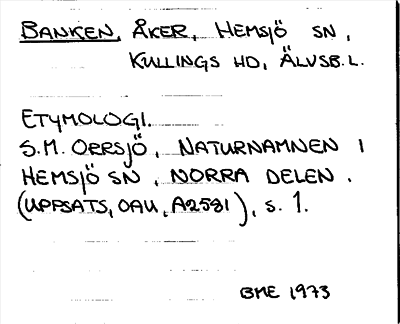 BANKEN, ÅKER, HEMSJÖ SN,
KULLINGS HD, ÄLVSB.L.
ETYMOLOGI.
S.M. ORRSJÖ, NATURNAMNEN I
HEMSJÖ SN, NORRA DELEN.
(UPPSATS, OAU, A2581), s. 1.
BME 1973